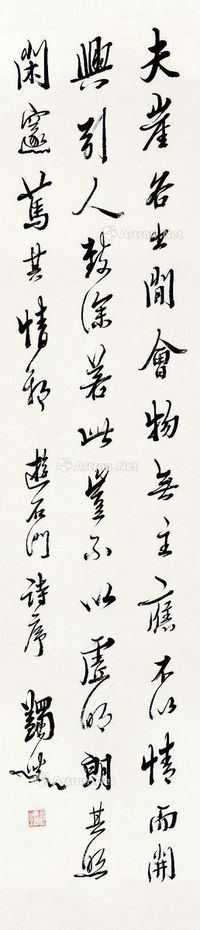 夫崖谷之間會物無主應不以情而開
興引人致深若此豈不以虛明朗其照
閑邃篤其情邪 遊石門詩序 蠲叟
Artron.Net
Artron.Net
Artron.Net